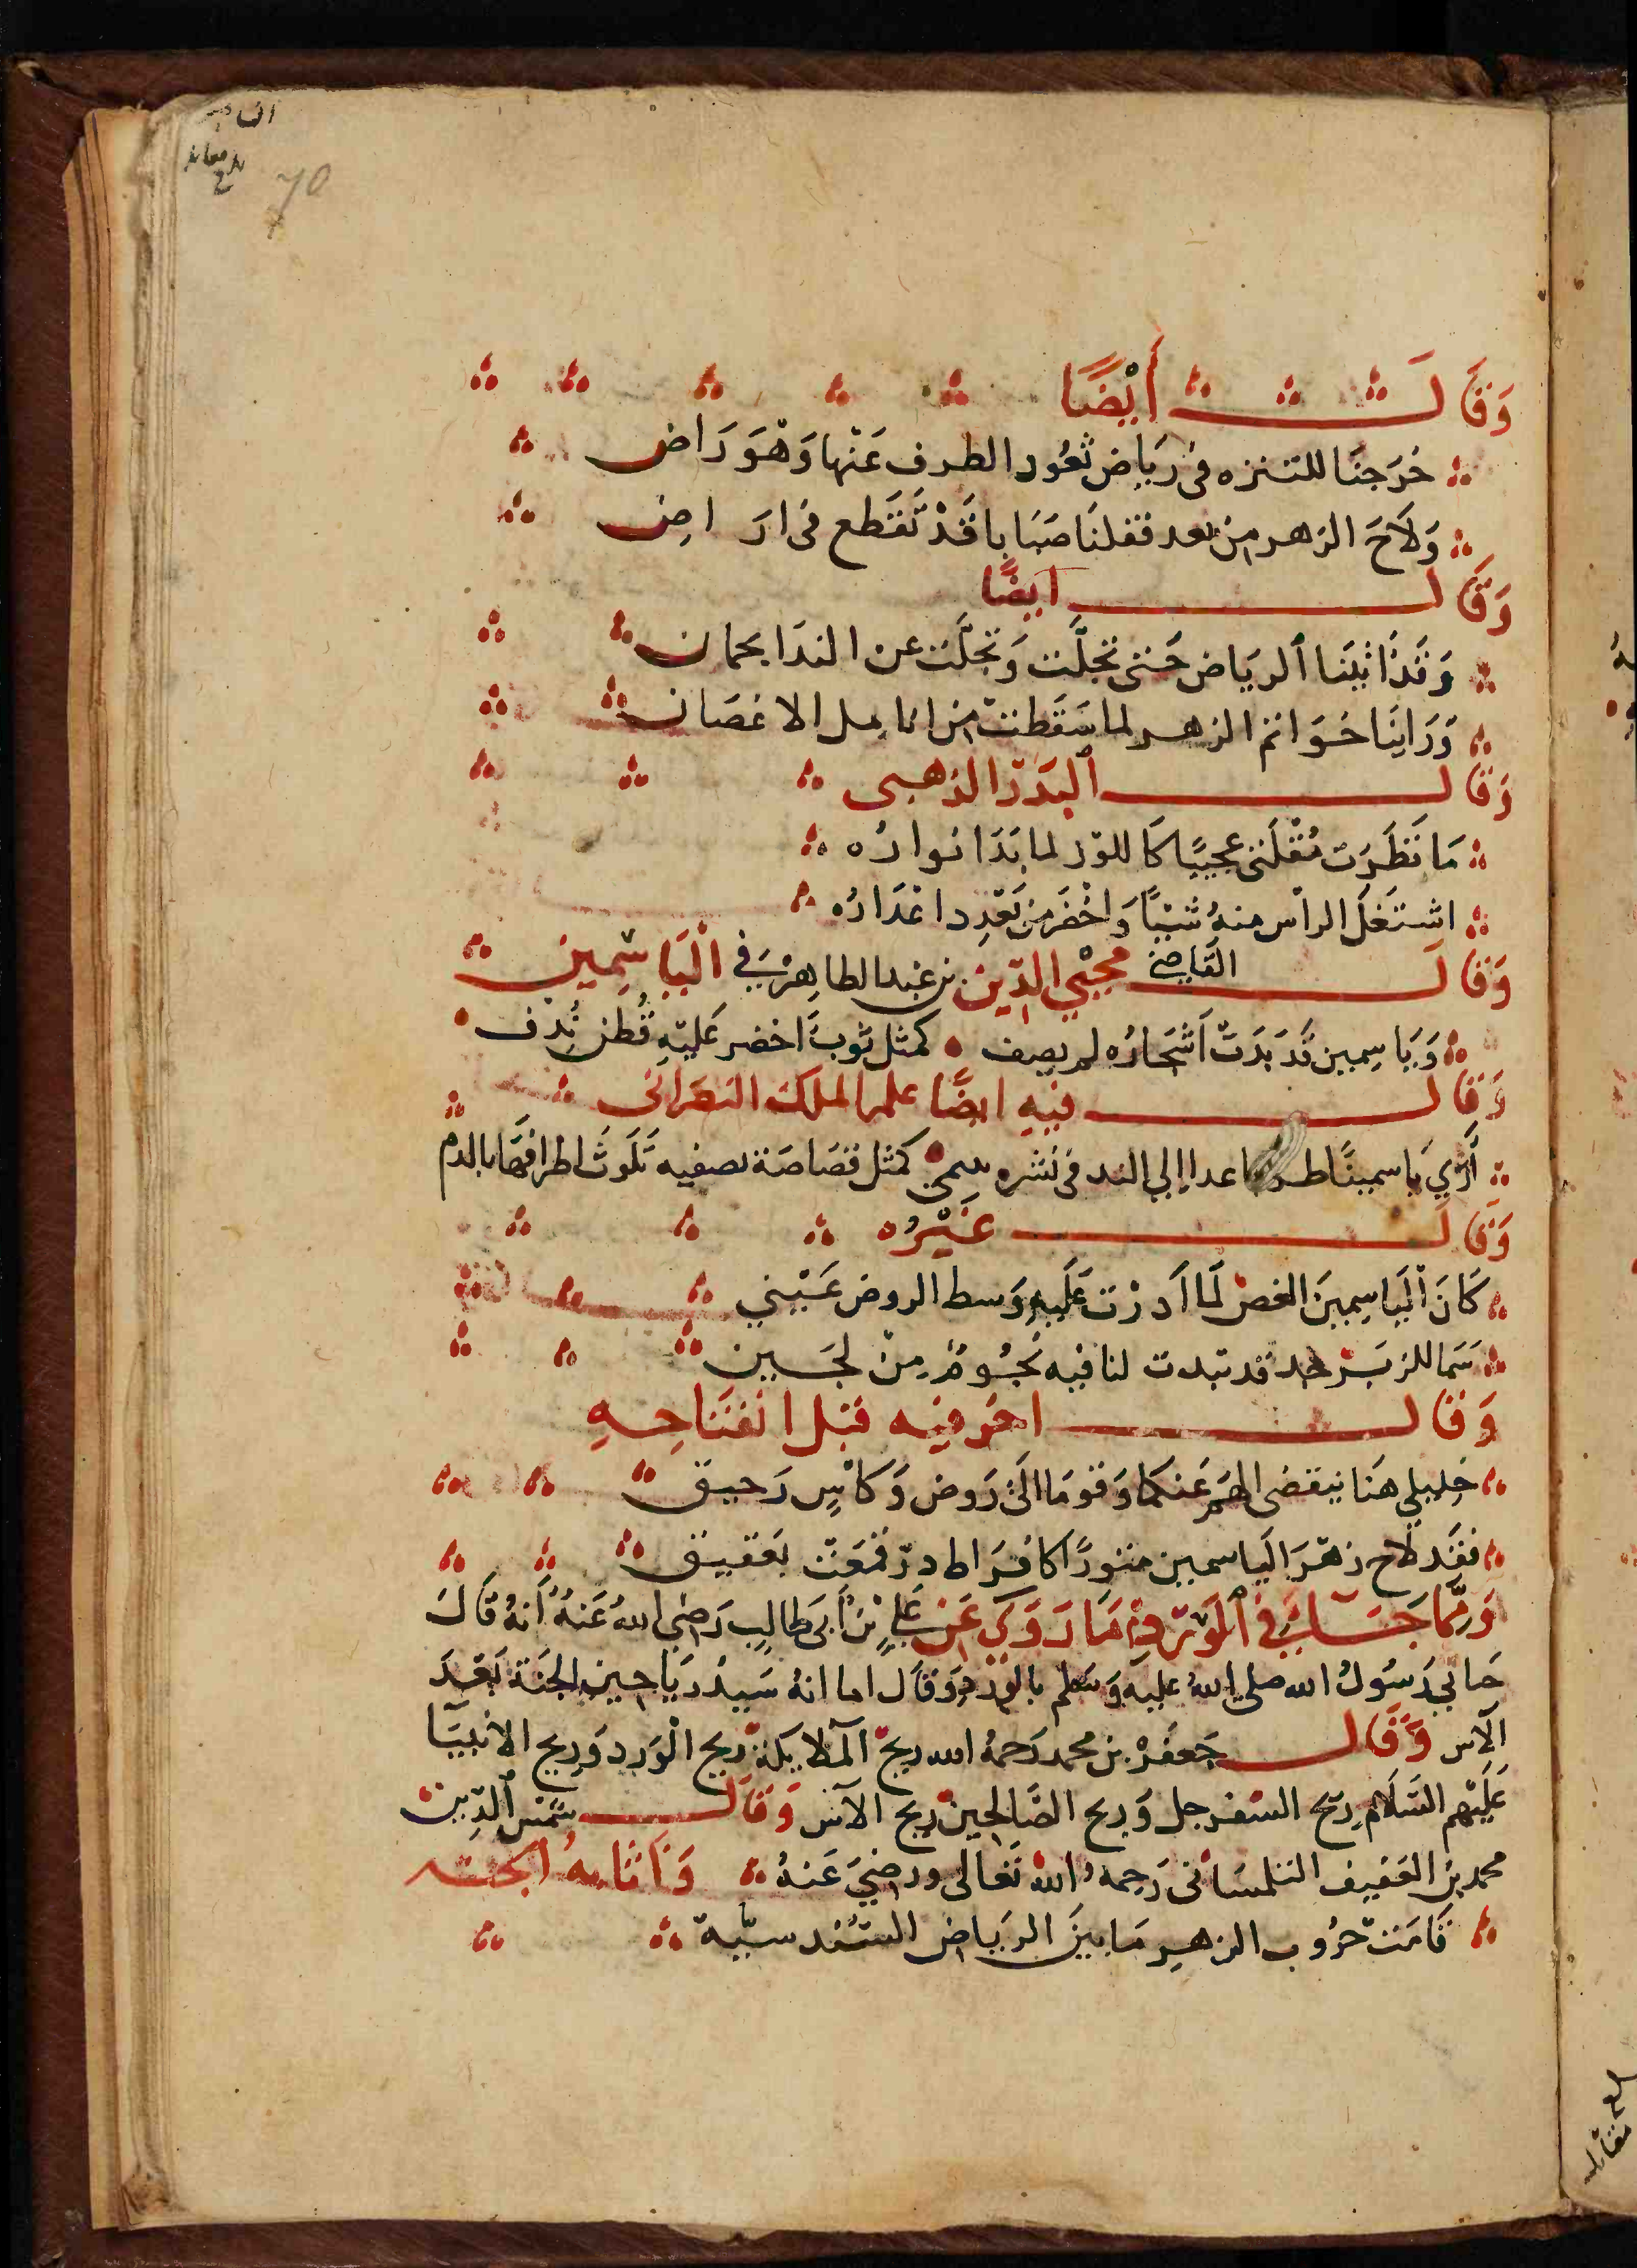 70
وَقَالَ أَيْضًا
خَرَجنَا للتنزه فى رَيَاض تَعُود الطرف عَنْها وَهْوَ رَاض
وَلَاحَ الزهر من بعد فقلنَا صَبَابا قَدْ تَقَطع فى ارَ اضِ
وَقَالَ ايضًا
وَقَدْ اتَيْنَا الريَاض حَتى تجلّت وَتحَلَّت عن الندَا بجمان
وَرَاينَا خَوَاتم الزهر لما سَقَطت من انامل الاغصَان
وَقَال البَدر الذهبى
مَا نَظَرَت مُقْلَتى عجيبًا كَاللوز لما بَدَا نوارُه
اشتَعَلَ الراس منهُ شَيْبًا وَاخْضَر من بَعْد ذا عْذَارُه
وَقَالَ القَاضِى محيْي الدّين بن عَبد الطاهِر فى الْيَاسَمِين
وَيَاسِمِين قَد بَدَتْ اَشجَارُه لمن يصف كمثل ثوبً اخضر عَليْهِ قُطن نُدِف
وَقَال فيهِ ايضًا علم الملك النصرَانى
أرَي يَاسمينًا الي الند فى نشره ينتمى كمثل قصَاصَة نصفيه تَلَوثَ اطرافهَا بالدم
وَقَالَ غَيْرُه
كَانَ اليَاسِمينَ الغض لَمَّا أَدَرْت عَلَيهِ وَسط الروض عَيْني
سَمَا للزبَرْجد قد تبدت لنا فيه نجُومٌ مِنْ لجَين
وَقَال اخر فيه قبل انفتَاحِهِ
خليلي هَنا ينقضى الهَم عَنكمَا وَقومَا الَى رَوض وَكَاسِ رَحيق
فقَد لَاح زهْرَ اليَاسمين منثورًا كاقراط درّ قمعَتْ بعَقيق
وَمِمَّا جَاءَ فِي الوَرْدِ مَا رَوَي عَنْ عَلِيٍ بْنُ أبى طالِب رَضِى اللهُ عَنهُ أَنهُ قَالَ
حَانِي رَسُولُ الله صلى اللهُ عليه وَسَلم بالورد وَقَال اما انهُ سَيدُ رَيَاحِين الجنَة بَعْدَ
الآس وَقَال جَعفَرْ بن محمد رَحمهُ الله ريحُ الملَايكة ريح الوَرد وَريح الانبيَا
عَلَيْهِم السَّلَام ريح السفرجل وَريح الصَّالحِين ريح الآس وَقَالَ شَمْس الدّين
محمد بن العَفيف التلمسَانى رَحِمهُ الله تَعَالى ورضيَ عَنهُ
قَامَت حُرُوب الزهرِ مَا بَينَ الريَاض السُندسيّة